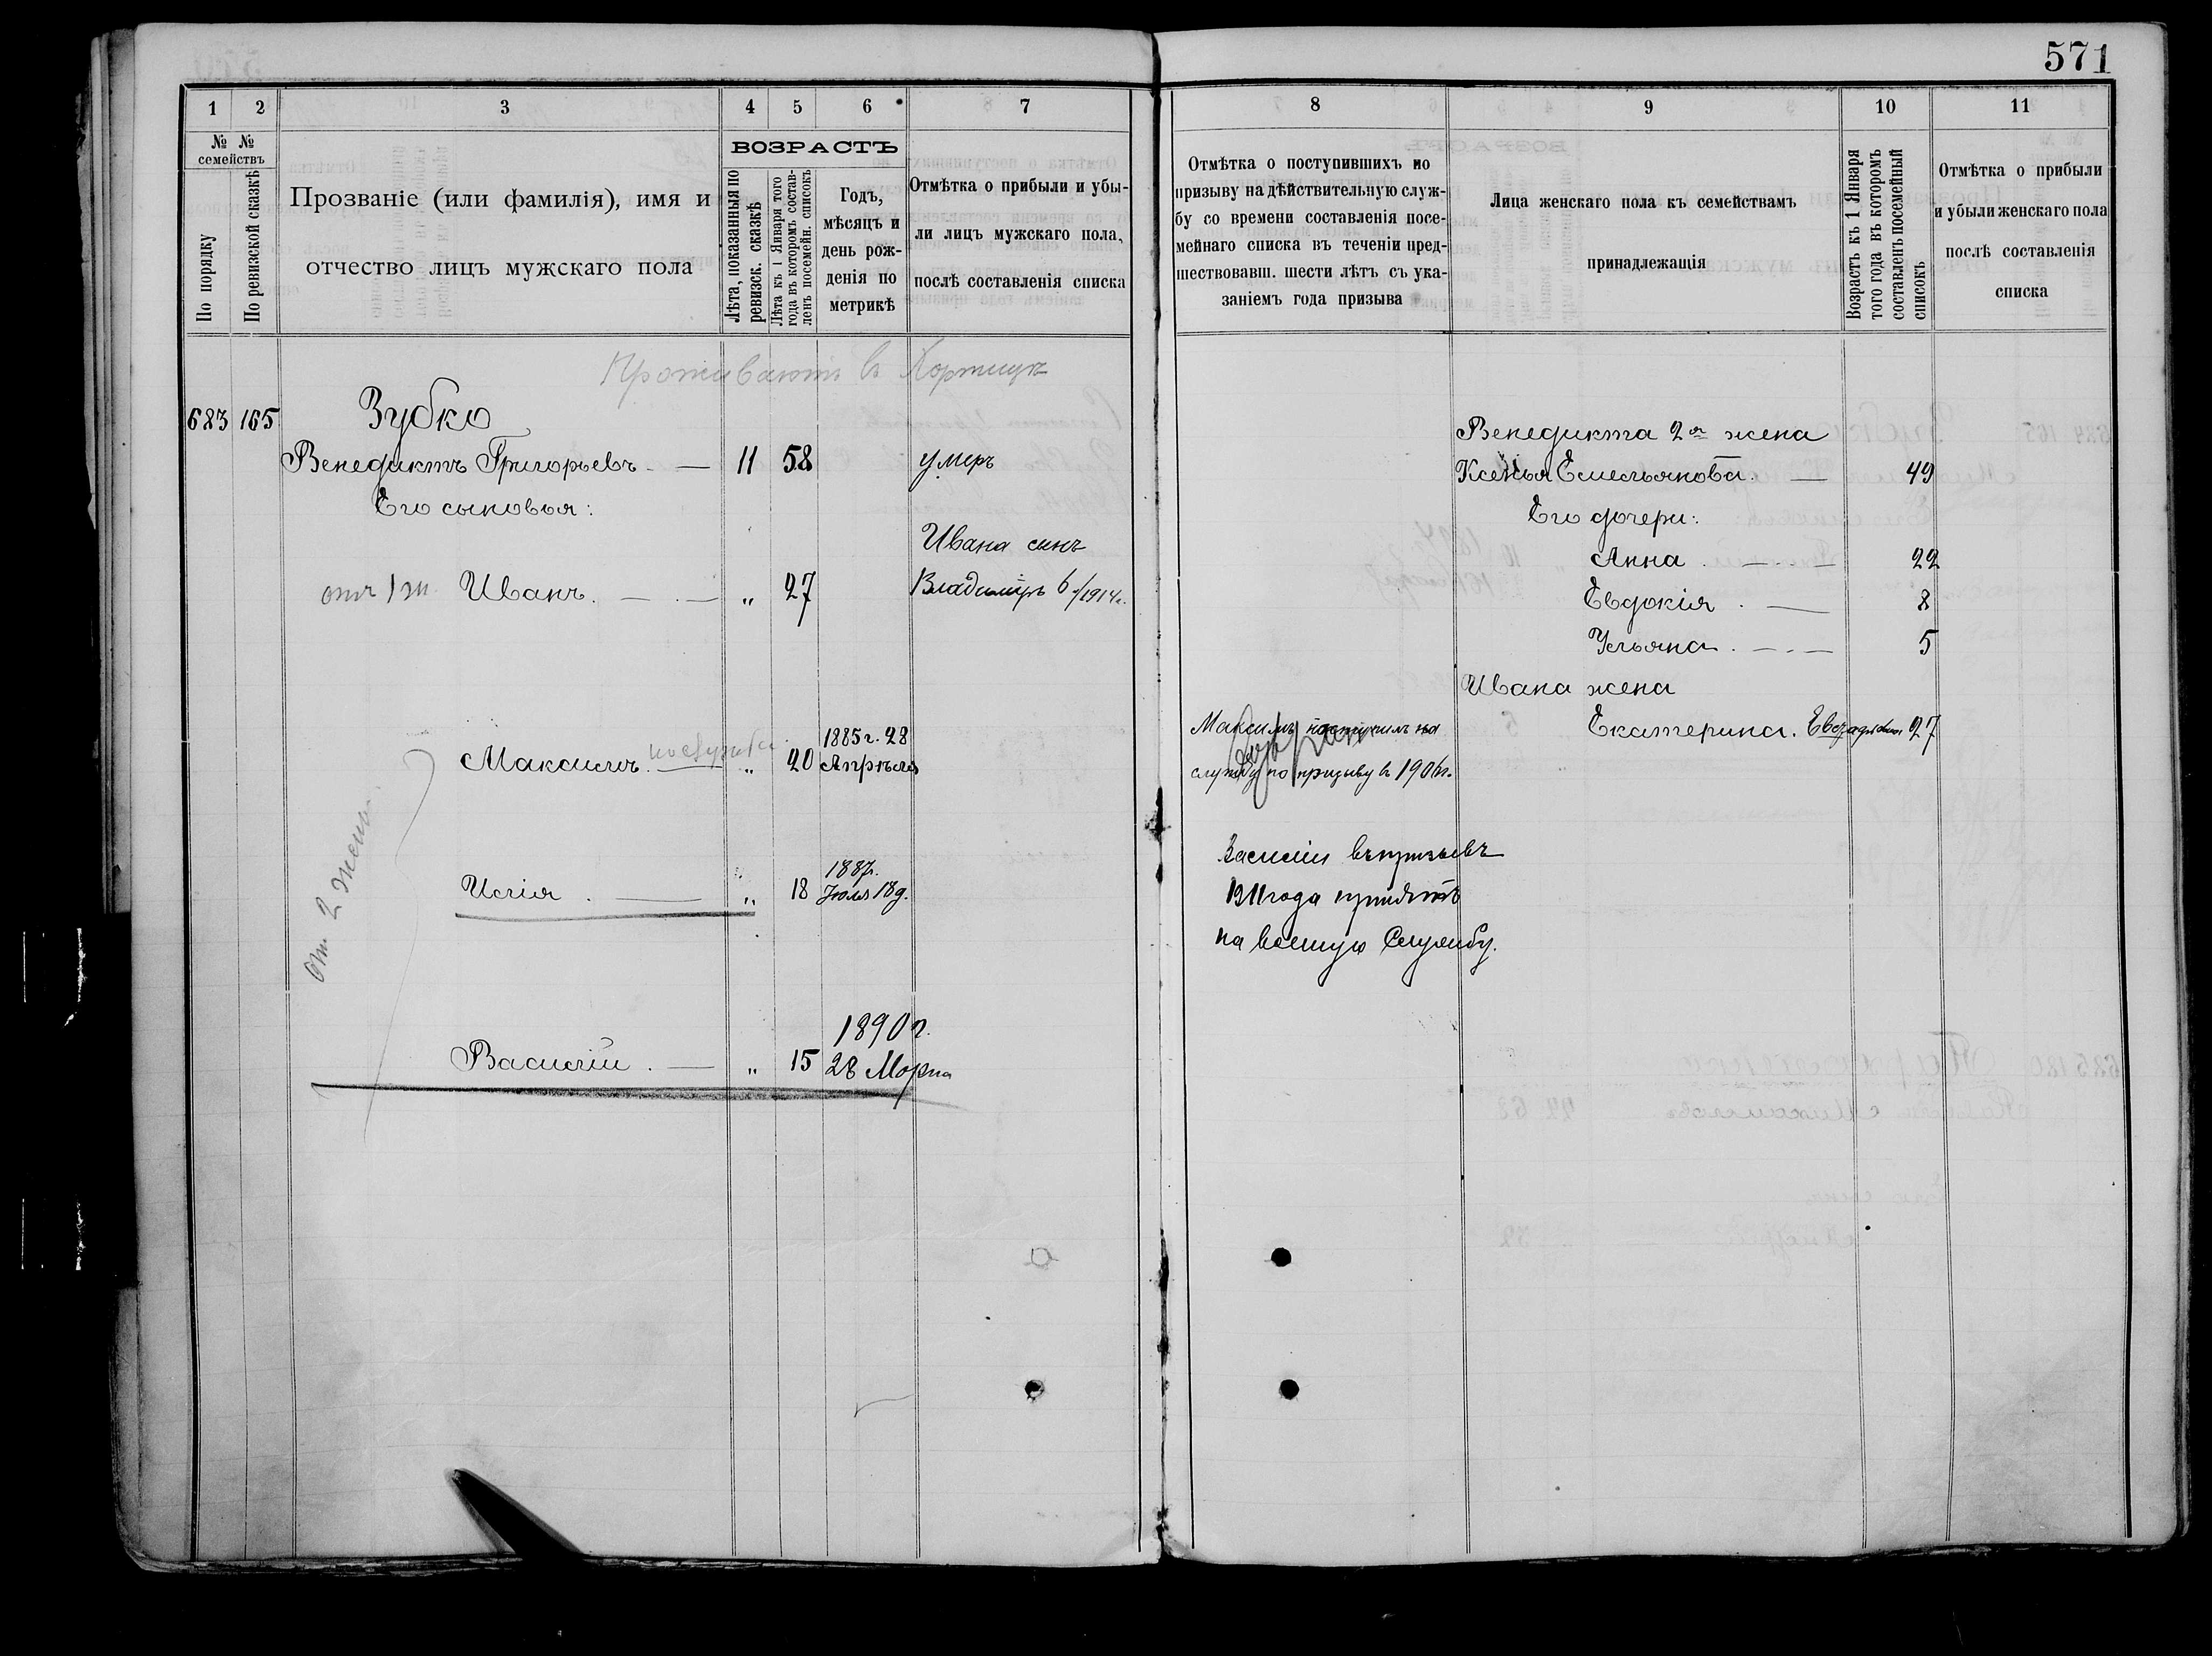 571
1
2
3
4
5
6
7
№ №
семействъ
По порядку
По ревизской сказкѣ
Прозваніе (или фамилія), имя и
отчество лицъ мужскаго пола
ВОЗРАСТЪ
Лѣта, показанныя по
ревизск. сказкѣ
Лѣта къ 1 Января того
года въ которомъ состав-
ленъ посемейн. списокъ
Годъ,
мѣсяцъ и
день рож-
денія по
метрикѣ
Отмѣтка о прибыли и убы-
ли лицъ мужскаго пола,
послѣ составленія списка
Проживаютъ въ Хортицѣ
683 165 Зубко
Венедиктъ Григорьевъ 11 58 умеръ
Его сыновья:
Ивана сынъ
отъ 1 ж. Иванъ „ 27 Владиміръ 6/1914г.
1885 г. 28
Максимъ „ 20 Апрѣля
от 2 жены
1887г.
Илія „ 18 Іюля 18 д.
1890 г.
Василій „ 15 28 Марта
8
9
10
11
Отмѣтка о поступившихъ по
призыву на дѣйствительную служ-
бу со времени составленія посе-
мейнаго списка въ теченіи пред-
шествовавш. шести лѣтъ съ ука-
заніемъ года призыва
Лица женскаго пола къ семействамъ
принадлежащія
Возрастъ къ 1 Января
того года въ которомъ
составленъ посемейный
списокъ
Отмѣтка о прибыли
и убыли женскаго пола
послѣ составленія
списка
Венедикта 2я жена
Ксенья Емельянова 49
Его дочери:
Анна 22
Евдокія 8
Ульяна 5
Ивана жена
Екатерина. 27
Максимъ поступилъ на
службу по призыву в 1906г.
Василій въ призывъ
1911 года принятъ
на военную службу.